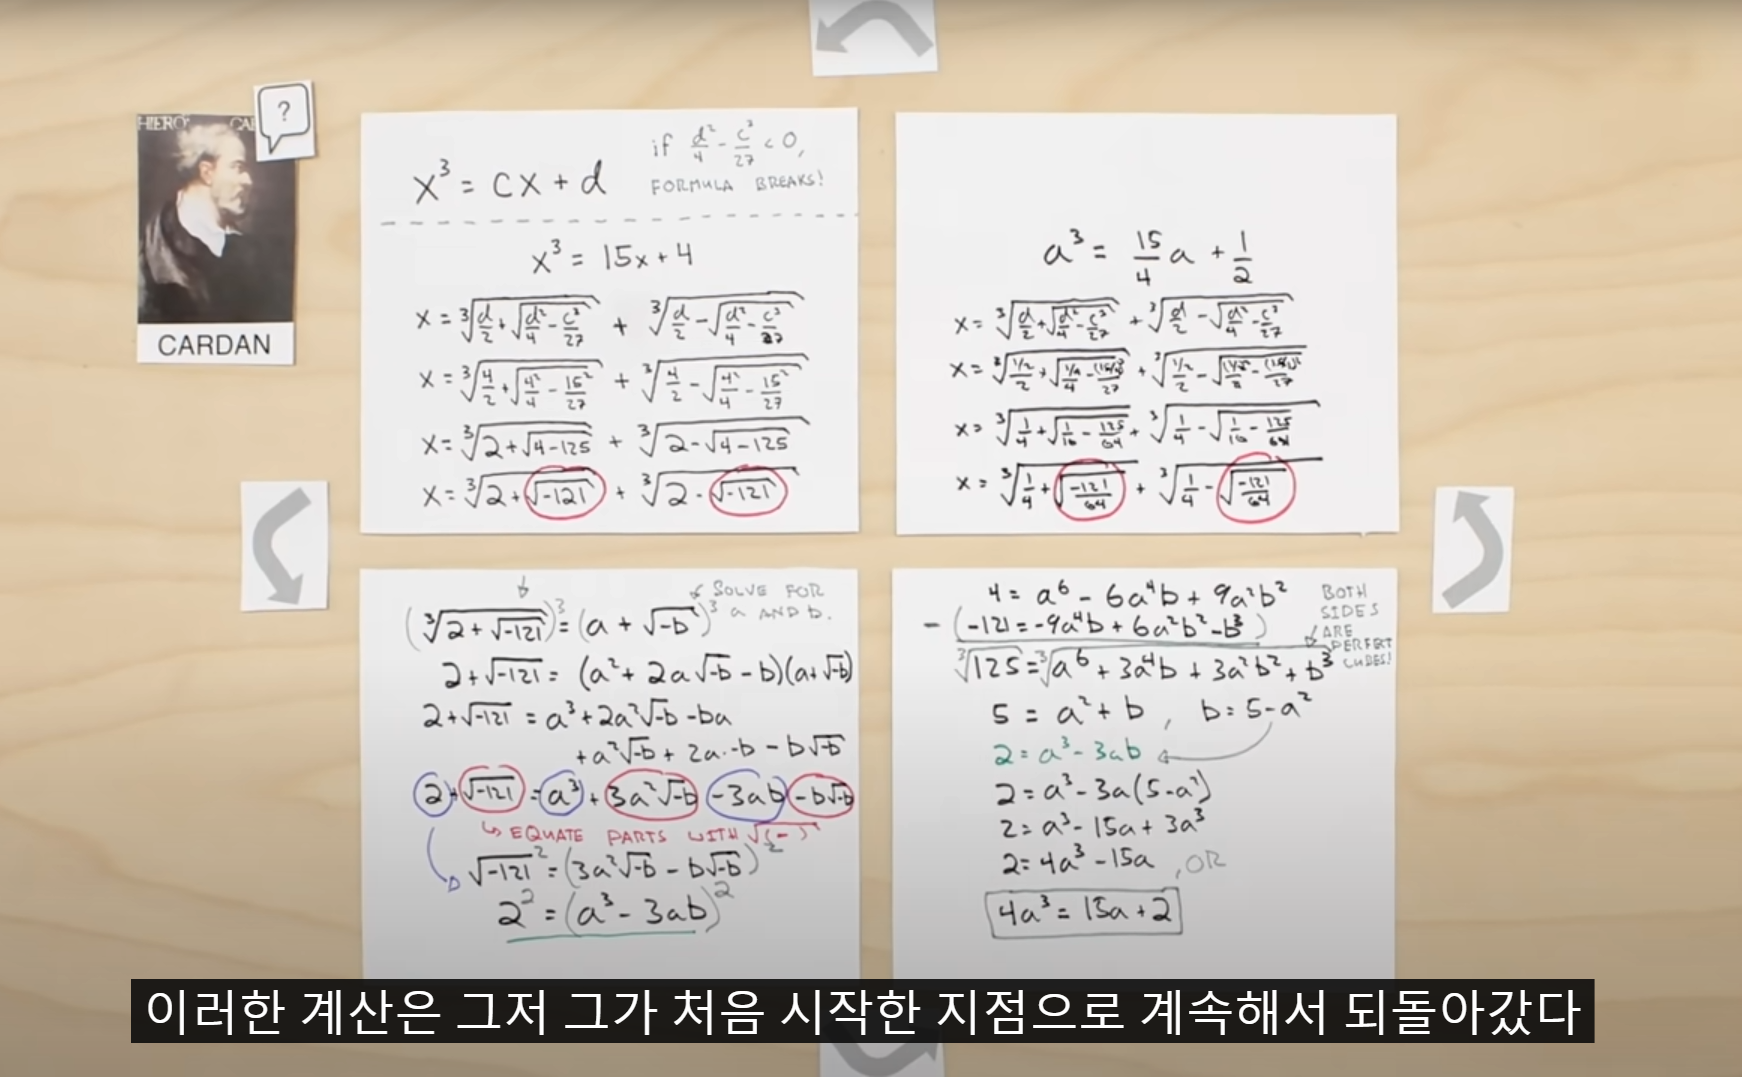 HIERO CAR
?
CARDAN
x³ = cx + d
if d²/4 - c³/27 < 0,
FORMULA BREAKS!
x³ = 15x + 4
x = ³√(d/2 + √(d²/4 - c³/27)) + ³√(d/2 - √(d²/4 - c³/27))
x = ³√(4/2 + √(4²/4 - 15²/27)) + ³√(4/2 - √(4²/4 - 15²/27))
x = ³√(2 + √(4-125)) + ³√(2 - √(4-125))
x = ³√(2 + √(-121)) + ³√(2 - √(-121))
a³ = 15/4 a + 1/2
x = ³√(d/2 + √(d²/4 - c³/27)) + ³√(d/2 - √(d²/4 - c³/27))
x = ³√(1/4 + √(1/16 - 125/64)) + ³√(1/4 - √(1/16 - 125/64))
x = ³√(1/4 + √(-121/64)) + ³√(1/4 - √(-121/64))
SOLVE FOR
a AND b.
(³√(2 + √(-121)))³ = (a + √-b)³
2 + √-121 = (a² + 2a√-b - b)(a + √-b)
2 + √-121 = a³ + 2a²√-b - ba
+ a²√-b + 2a·-b - b√-b
2 + √-121 = a³ + 3a²√-b - 3ab - b√-b
EQUATE PARTS WITH √(-)
√-121² = (3a²√-b - b√-b)²
2² = (a³ - 3ab)²
4 = a⁶ - 6a⁴b + 9a²b²
- (-121 = -9a⁴b + 6a²b² - b³)
BOTH
SIDES
ARE
PERFECT
CUBES!
³√125 = ³√(a⁶ + 3a⁴b + 3a²b² + b³)
5 = a² + b, b = 5 - a²
2 = a³ - 3ab
2 = a³ - 3a(5 - a²)
2 = a³ - 15a + 3a³
2 = 4a³ - 15a, OR
4a³ = 15a + 2
이러한 계산은 그저 그가 처음 시작한 지점으로 계속해서 되돌아갔다